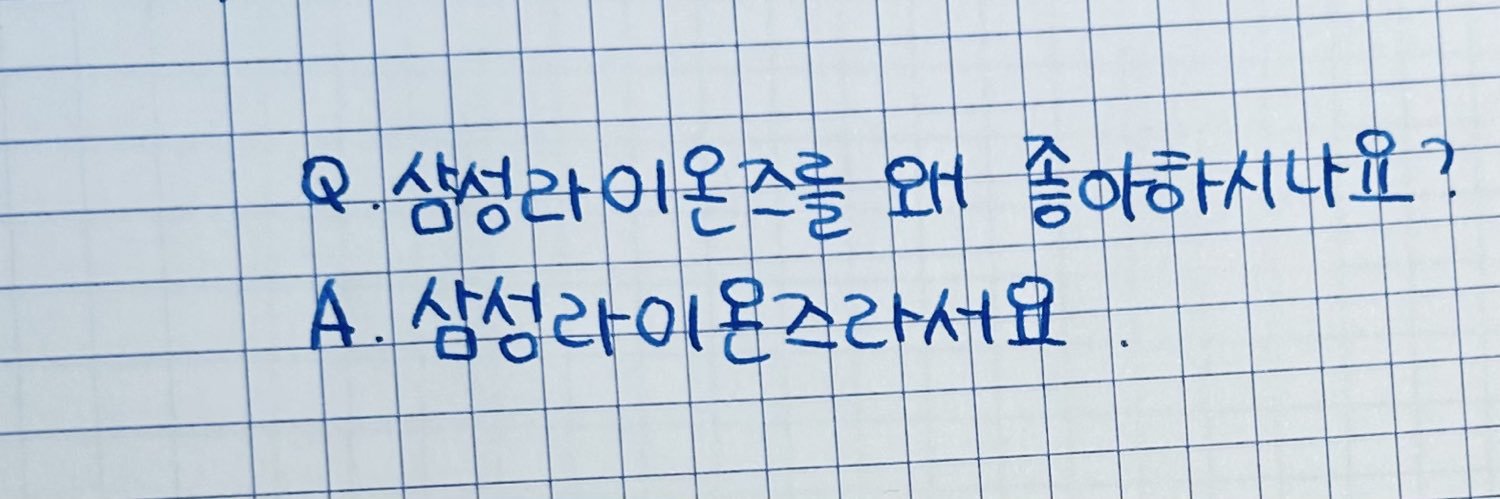 Q. 삼성라이온즈를 왜 좋아하시나요?
A. 삼성라이온즈라서요.